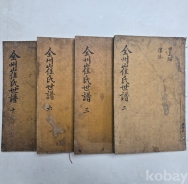 全州崔氏世譜 二
全州崔氏世譜 三
全州崔氏世譜
全州崔氏世譜 十
kobay